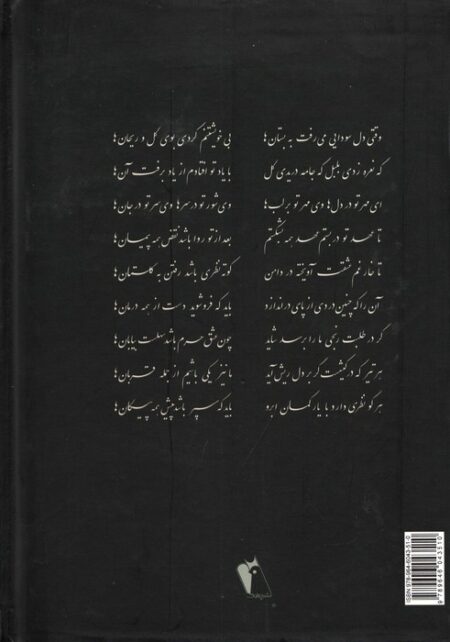 وقتی دل سودایی می‌رفت به بستان‌ها بی خویشتنم کردی بوی گل و ریحان‌ها
که نعره زدی بلبل که جامه دریدی گل با یاد تو افتادم از یاد برفت آن‌ها
ای مهر تو در دل‌ها وی مهر تو بر لب‌ها وی شور تو در سرها وی سر تو در جان‌ها
تا عهد تو در بستم عهد همه بشکستم بعد از تو روا باشد نقض همه پیمان‌ها
تا خار غم عشقت آویخته در دامن کوته نظری باشد رفتن به گلستان‌ها
آن را که چنین دردی از پای دراندازد باید که فروشوید دست از همه درمان‌ها
گر در طلبت رنجی ما را برسد شاید چون عشق حرم باشد سهلست بیابان‌ها
هر تیر که در کیشست گر بر دل ریش آید ما نیز یکی باشیم از جمله قربان‌ها
هر کو نظری دارد با یار کمان ابرو باید که سپر باشد پیش همه پیکان‌ها
ISBN: 978-964-6043-51-0
9 789646 043510